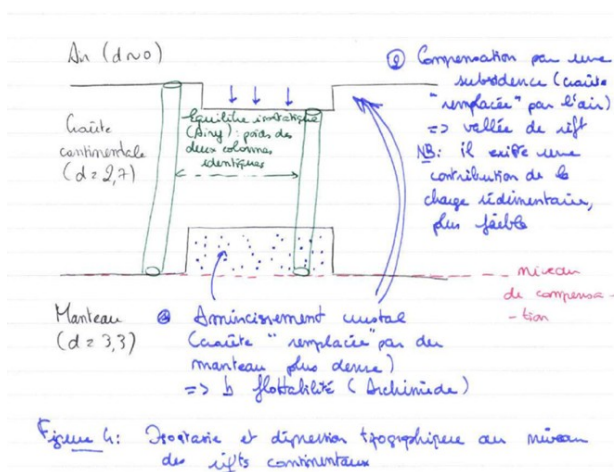 Air (d~0)
Croûte
continentale
(d = 2,7)
Equilibre isostatique
(Airy) : poids des
deux colonnes
identiques
② Compensation par une
subsidence (croûte
"remplacée" par l'air)
=> vallée de rift
NB: il existe une
contribution de la
charge sédimentaire,
plus faible
niveau
de compensa-
-tion
Manteau
(d = 3,3)
Amincissement crustal
(croûte "remplacée" par du
manteau plus dense)
=> flottabilité (Archimède)
Figure 4: Isostasie et dépression topographique au niveau
des rifts continentaux